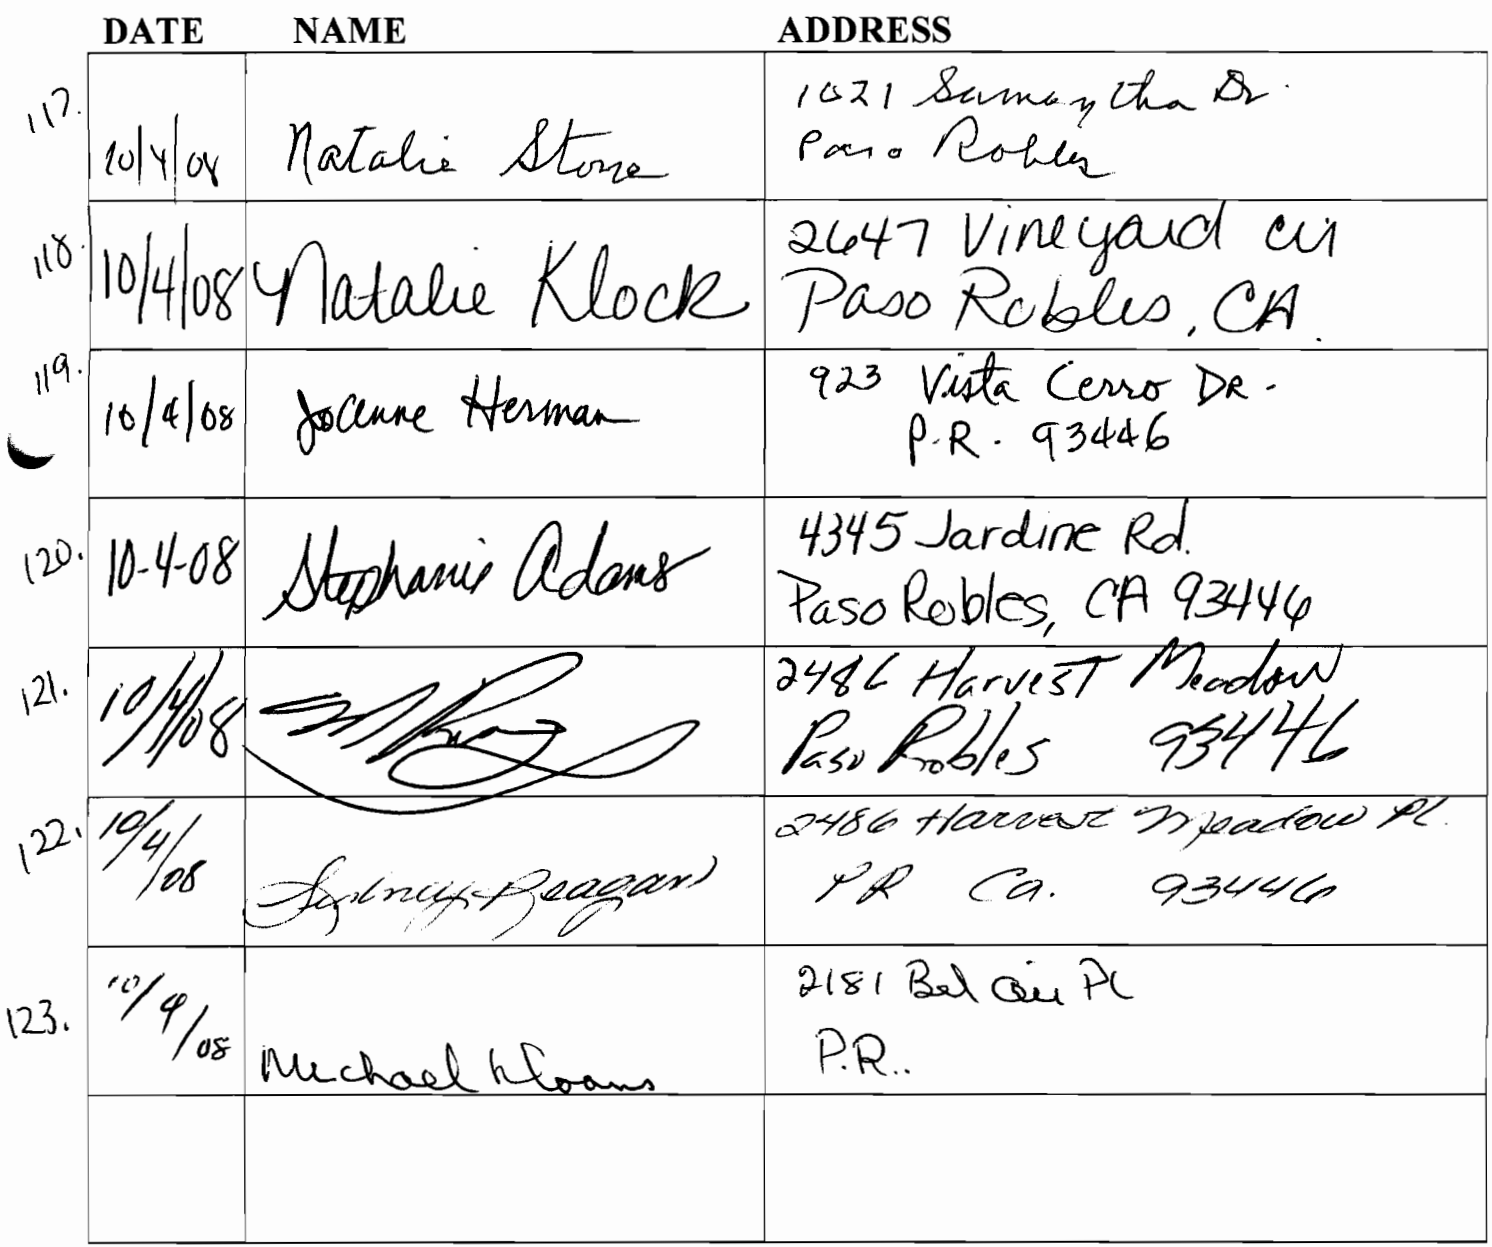 DATE NAME ADDRESS
117. 10/4/08 Natalie Stone 1021 Samantha Dr.
Paso Robles
118. 10/4/08 Natalie Klock 2647 Vineyard Cir
Paso Robles, CA.
119. 10/4/08 Joanne Herman 923 Vista Cerro DR.
P.R. 93446
120. 10-4-08 Stephanie Adams 4345 Jardine Rd.
Paso Robles, CA 93446
121. 10/4/08 2486 Harvest Meadow
Paso Robles 93446
122. 10/4/08 Sydney Reagan 2486 Harvest Meadow Pl.
PR Ca. 93446
123. 10/4/08 Michael 2181 Bel Air Pl
P.R..